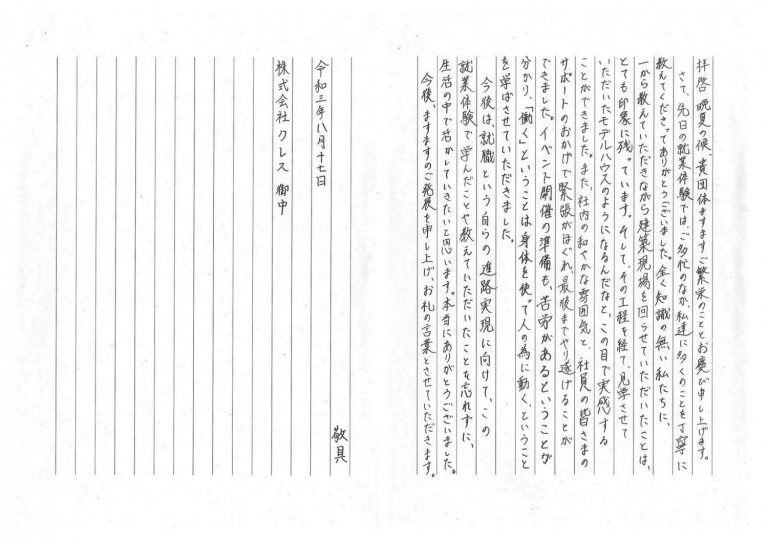 拝啓 晩夏の候、貴団体ますますご繁栄のこととお慶び申し上げます。
さて、先日の就業体験では、ご多忙のなか私達に多くのことを丁寧に
教えてくださってありがとうございました。全く知識の無い私たちに、
一から教えていただきながら建築現場を回らせていただいたことは、
とても印象に残っています。そして、その工程を経て、見学させて
いただいたモデルハウスのようになるんだなと、この目で実感する
ことができました。また、社内の和やかな雰囲気と、社員の皆さまの
サポートのおかげで緊張がほぐれ、最後までやり遂げることが
できました。イベント開催の準備も、苦労があるということが
分かり、「働く」ということは身体を使って人の為に動く、ということ
を学ばさせていただきました。
今後は、就職という自らの進路実現に向けて、この
就業体験で学んだことや教えていただいたことを忘れずに、
生活の中で活かしていきたいと思います。本当にありがとうございました。
今後、ますますのご発展を申し上げ、お礼の言葉とさせていただきます。
敬具
令和三年八月十七日
株式会社クレス 御中